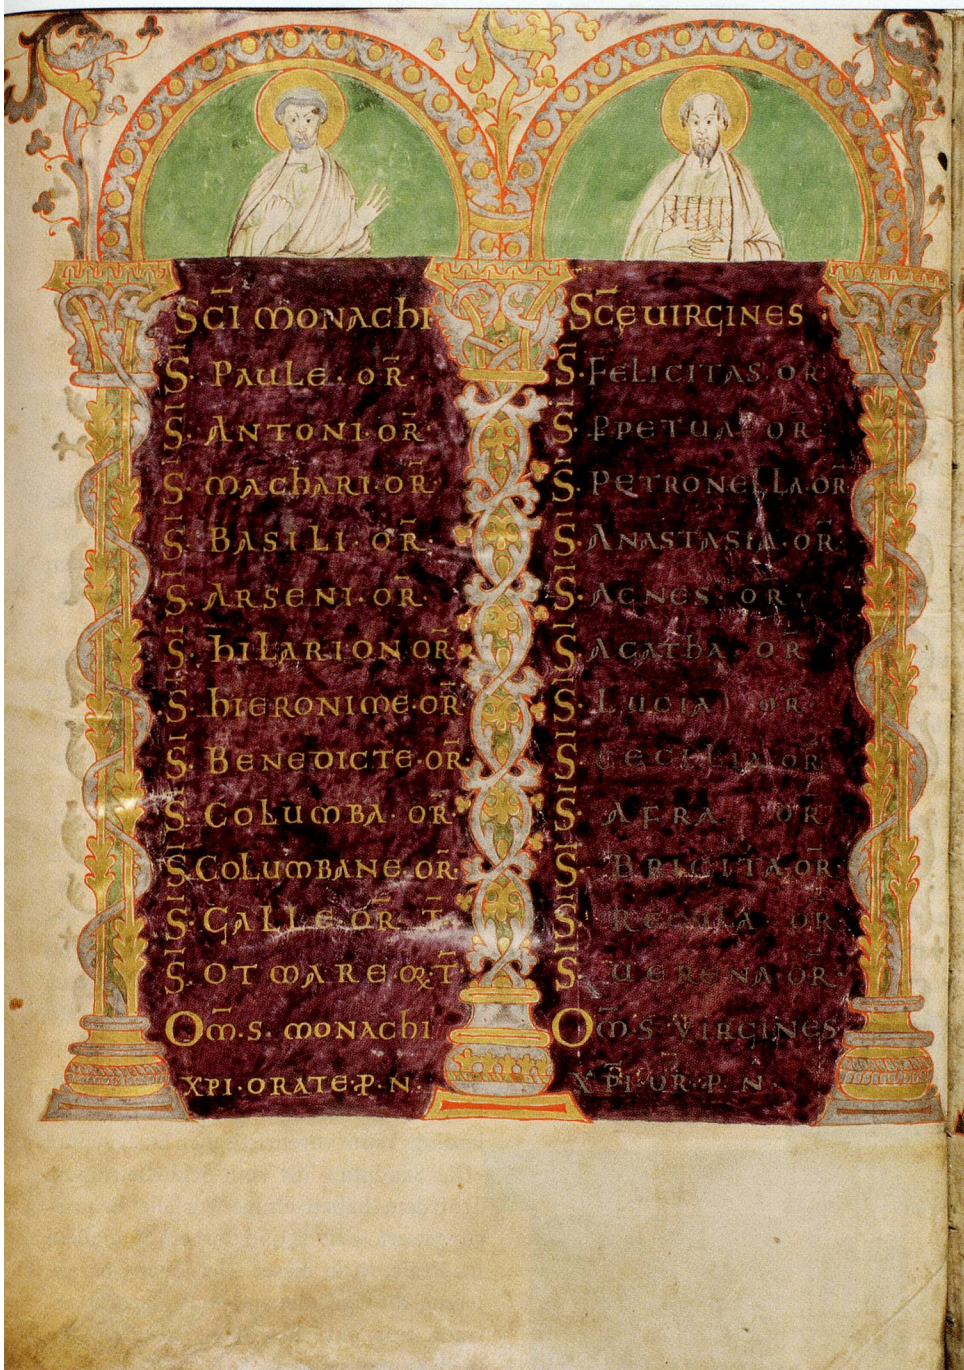 SC̄I MONACHI
S̄. PAULE. OR̄.
S̄. ANTONI. OR̄.
S̄. MACHARI. OR̄.
S̄. BASILI. OR̄.
S̄. ARSENI. OR̄.
S̄. HILARION OR̄.
S̄. HIERONIME. OR̄.
S̄. BENEDICTE. OR̄.
S̄. COLUMBA. OR.
S̄. COLUMBANE. OR̄.
S̄. GALLE. OR̄. T̄.
S̄. OTMARE OR̄. T̄
OM̄. S. MONACHI
XPI. ORATE. P. N.
SC̄Ę UIRGINES
S̄. FELICITAS. OR̄
S̄. PPETUA. OR̄
S̄. PETRONELLA. OR̄
S̄. ANASTASIA. OR̄.
S̄. AGNES. OR̄.
S̄. AGATHA. OR̄
S̄. LUCIA OR̄
S̄. CECILIA. OR̄
S̄. AFRA OR̄
S̄. BRIGITA. OR̄.
S̄. REGULA OR̄
S̄. UERENA. OR̄.
OM̄. S. VIRGINES
XP̄I. OR̄. P. N